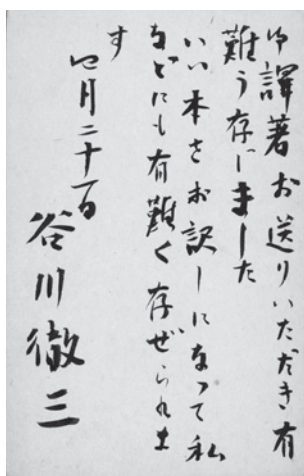 御譯著お送りいただき有
難う存じました
いい本をお訳しになつて私
などにも有難く存ぜられま
す
四月二十一日
谷川徹三